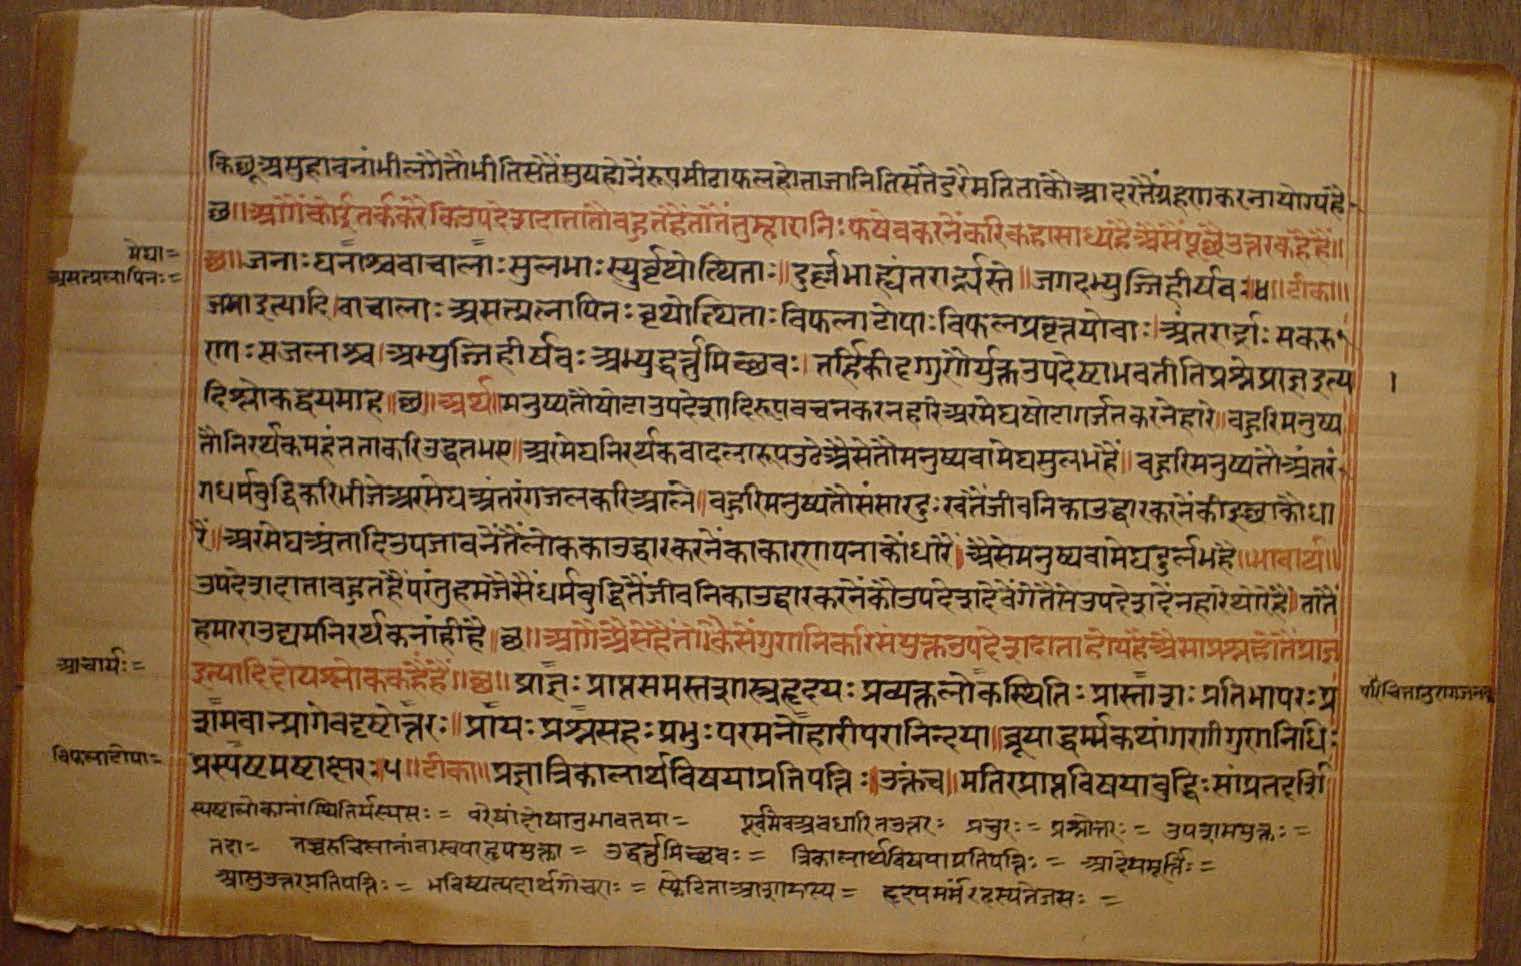 किछू असुहावनां भी लगै तौ भी तिसतैं सुख होनें रूप मीठा फल होता जानि तिसतैं डरै मति ताकौ आदरतैं ग्रहण करना योग्य है
छ॥ आगैं कोई तर्क करै कि उपदेशदाता तौ बहुत हैं तातैं तुम्हारा निःफल षेद करनें करि कहा साध्य है अैसे पूछै उत्तर कहै हैं॥
छ॥ जनाः घनाश्च वाचालाः सुलभाः स्युर्वृथोत्थिताः॥ दुर्ल्लभा ह्यंतरार्द्रास्ते॥ जगदभ्युज्जिहीर्षवः ४॥ टीका॥
जना इत्यादि। वाचालाः असत्प्रलापिनः वृथोत्थिताः विफलाटोपाः विफलप्रवृत्तयो वा। अंतरार्द्राः सकरु
णाः सजलाश्च। अभ्युज्जिहीर्षवः अभ्युद्धर्त्तुमिच्छवः। तर्हि कीदृग्गुणैर्युक्त उपदेष्टा भवतीति प्रश्ने प्राज्ञ इत्य
दि श्लोकद्वयमाह॥ छ॥ अर्थ॥ मनुष्य तौ षोटा उपदेशादि रूप वचन करनहारे अर मेघ षोटा गर्जत करनेहारे॥ बहुरि मनुष्य
तौ निरर्थक महंतता करि उद्धत भए॥ अर मेघ निरर्थक वादला रूप उठे अैसे तौ मनुष्य वा मेघ सुलभ हैं॥ बहुरि मनुष्य तौ अंतरं
ग धर्मबुद्धि करि भीजे अर मेघ अंतरंग जल करि आले॥ बहुरि मनुष्य तौ संसार दुःखतैं जीवनि का उद्धार करनें की इच्छा कौ धा
रें॥ अर मेघ अंनादि उपजावनें तैं लोक का उद्धार करनें का कारणपना कौं धारें॥ अैसे मनुष्य वा मेघ दुर्लभ है॥ भावार्थ॥
उपदेशदाता बहुत हैं परंतु हम जैसैं धर्मबुद्धि तैं जीवनि का उद्धार करनें कौ उपदेश देवेंगे तैसे उपदेश देंनहारे थोरे हैं॥ तातैं
हमारा उद्यम निरर्थक नांही है॥ छ॥ आगै अैसे है तौ कैसे गुणनि करि संयुक्त उपदेशदाता होय है अैसा प्रश्न होतैं प्राज्ञ
इत्यादि दोय श्लोक कहै हैं॥ छ॥ प्राज्ञः प्राप्तसमस्तशास्त्रहृदयः प्रव्यक्तलोकस्थितिः प्रास्ताशः प्रतिभापरः प्र
शमवान्प्रागेव दृष्टोत्तरः॥ प्रायः प्रश्नसहः प्रभुः परमनोहारी परानिन्दया॥ ब्रूयाद्धर्म्मकथां गणी गुणनिधिः
प्रस्पष्टमिष्टाक्षरः ५॥ टीका॥ प्रज्ञा त्रिकालार्थविषया प्रतिपत्तिः॥ उक्तं च॥ मतिरप्राप्तविषया बुद्धिः सांप्रतदर्शि
मेघा =
असत्प्रलापिनः =
आचार्यः =
विफलाटोपाः =
परचित्तानुरागजनक
स्पष्टा लोकानां स्थितिर्यस्य सः = परेषां दोषानुभावतया = पूर्वमेव अवधारितउत्तरः प्रचुरः = प्रश्नोत्तरः = उपशमयुक्तः =
तदा = उद्धर्त्तुमिच्छवः = त्रिकालार्थविषया प्रतिपत्तिः =
आसु उत्तरप्रतिपत्तिः = भविष्यत्पदार्थगोचराः =